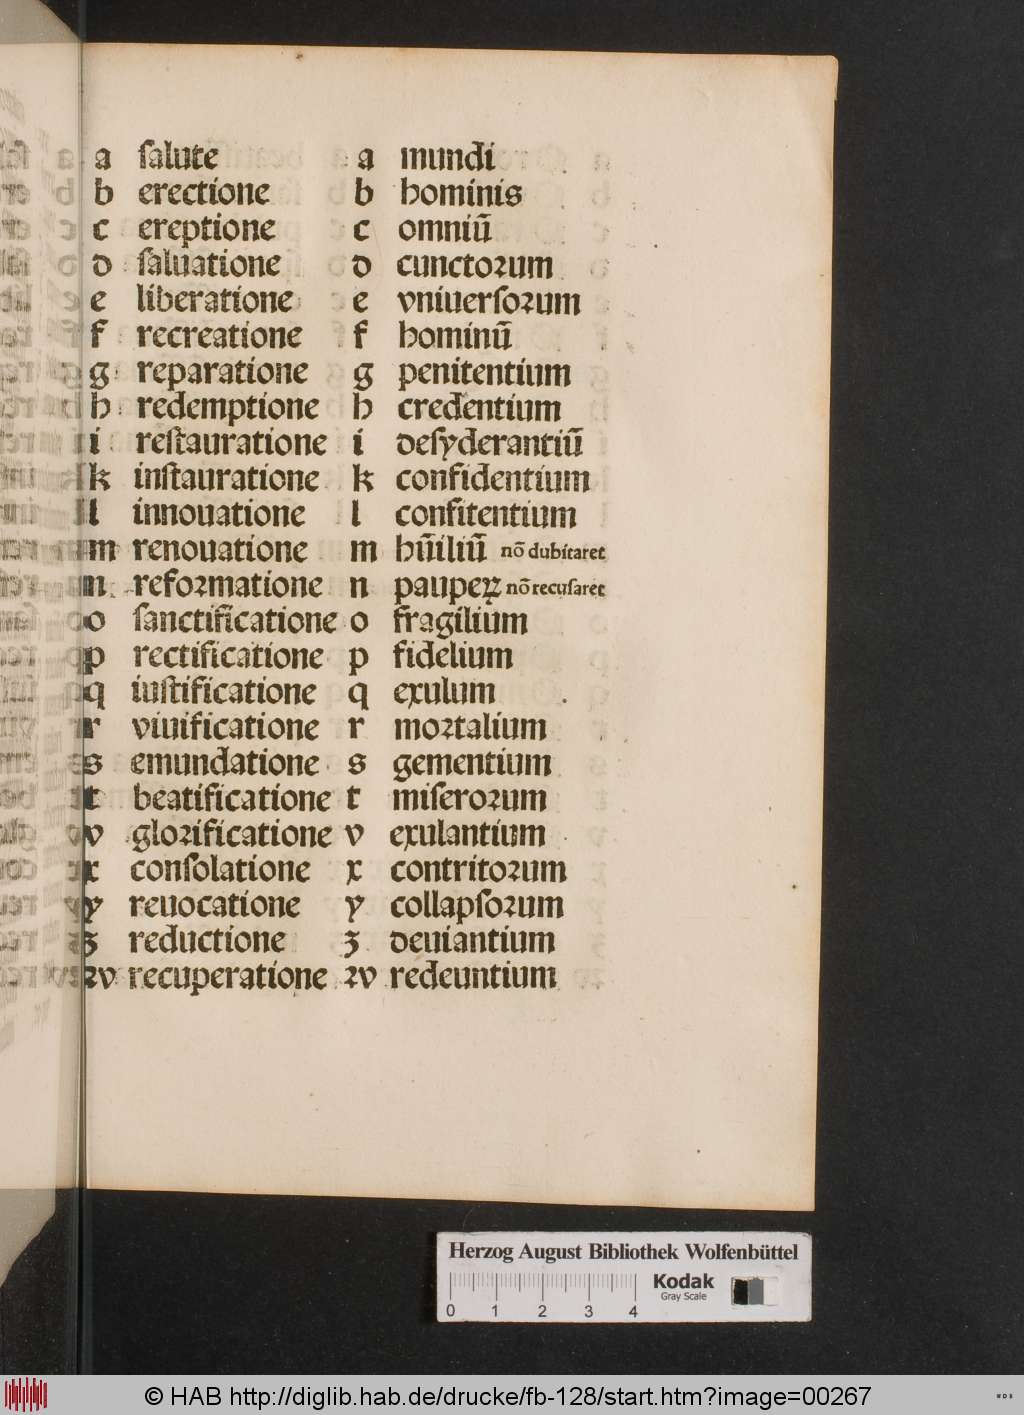 a ſalute a mundi
b erectione b hominis
c ereptione c omniū
d ſaluatione d cunctoꝛum
e liberatione e vniuerſoꝛum
f recreatione f hominū
g reparatione g penitentium
h redemptione h credentium
i reſtauratione i deſyderantiū
k inſtauratione k confidentium
l innouatione l confitentium
m renouatione m hūiliū nō dubitaret
n refoꝛmatione n pauperꝝ nō recuſaret
o ſanctificatione o fragilium
p rectificatione p fidelium
q iuſtificatione q exulum
r viuificatione r moꝛtalium
s emundatione s gementium
t beatificatione t miſeroꝛum
v gloꝛificatione v exulantium
x conſolatione x contritoꝛum
y reuocatione y collapſoꝛum
ʒ reductione ʒ deuiantium
ꝛv recuperatione ꝛv redeuntium
Herzog August Bibliothek Wolfenbüttel
0 1 2 3 4 Kodak
Gray Scale
© HAB http://diglib.hab.de/drucke/fb-128/start.htm?image=00267
WDB